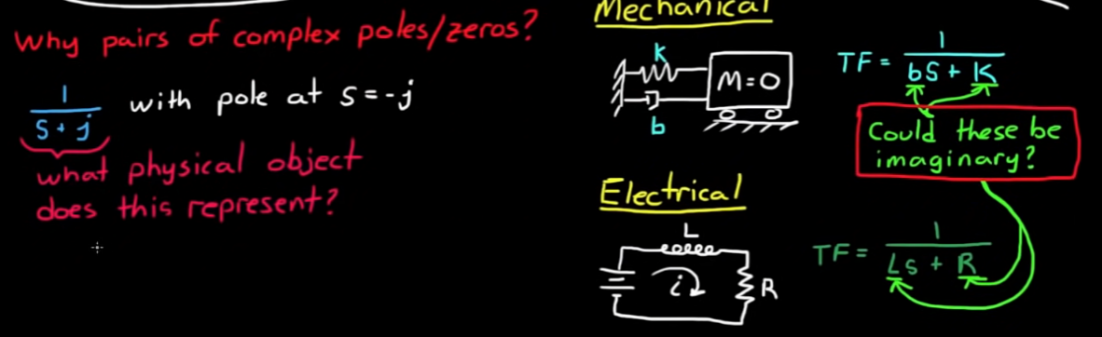 Why pairs of complex poles/zeros?
1
S + j
with pole at s = -j
what physical object
does this represent?
Mechanical
K
M=0
b
TF = 1
bS + K
Could these be
imaginary?
Electrical
L
i
R
TF = 1
Ls + R